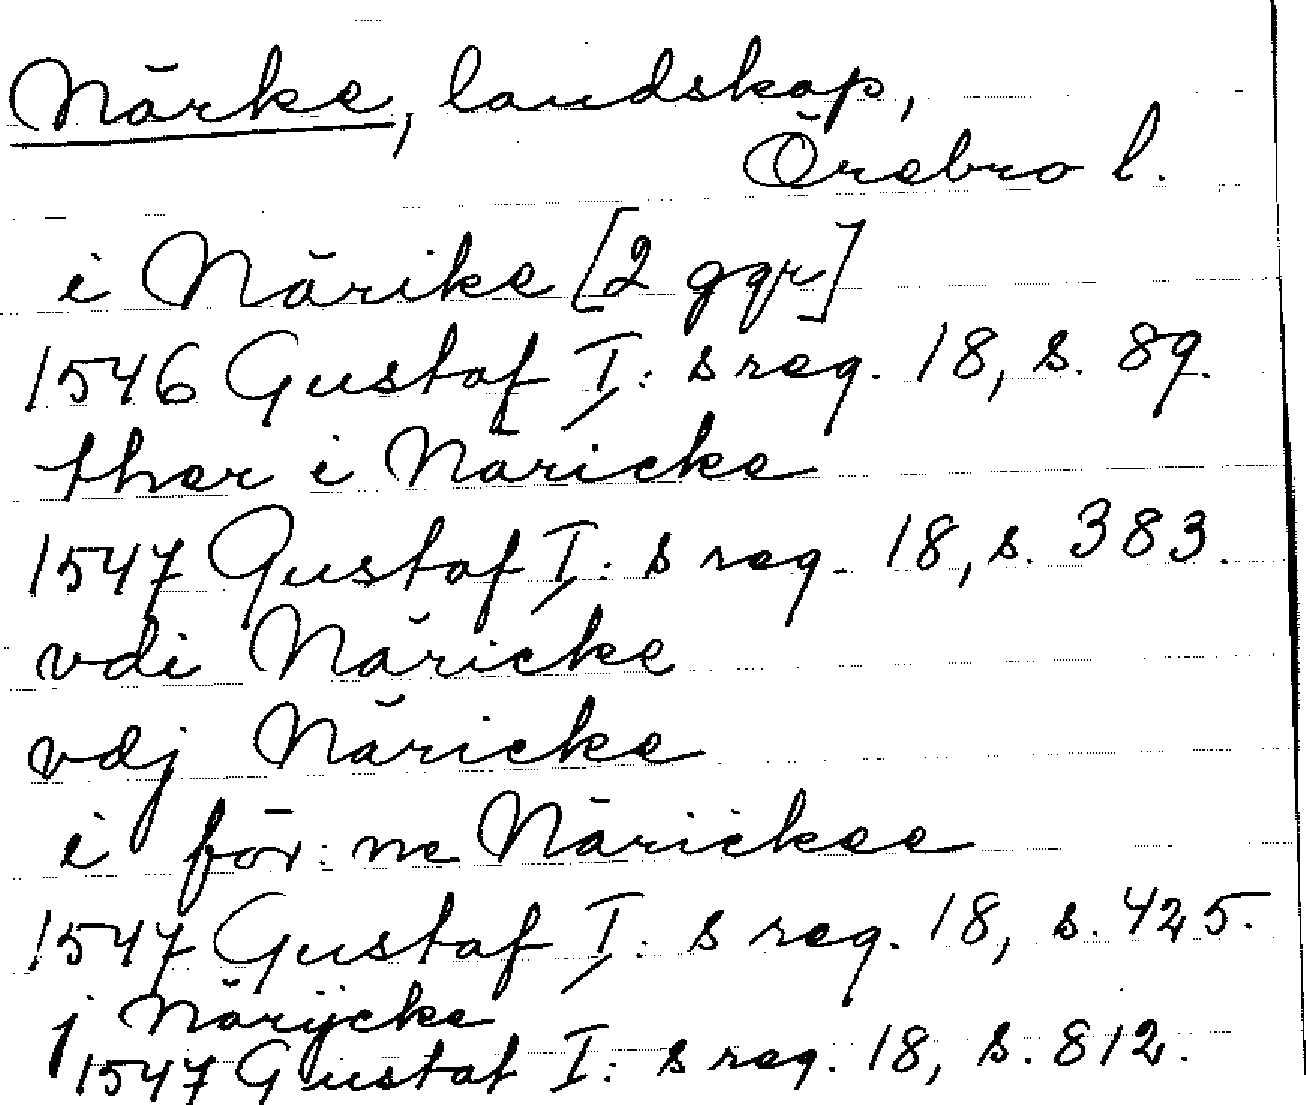 Närke, landskap,
Örebro l.
i Närike [2 ggr]
1546 Gustaf I: s reg. 18, s. 89.
ther i Näricke
1547 Gustaf I: s reg. 18, s. 383.
vdi Näricke
vdj Näricke
i för: ne Närickee
1547 Gustaf I: s reg. 18, s. 425.
j Närÿcke
1547 Gustaf I: s reg. 18, s. 812.